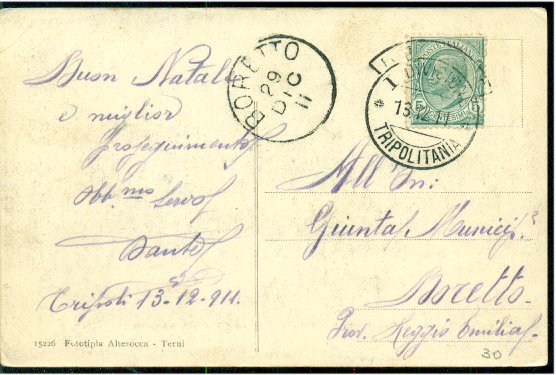 Buon Natale
e miglior
proseguimento
Obb.mo Servo
Dante
Tripoli 13-12-911.
15226 Fototipia Alterocca - Terni
BORETTO
29
DIC
11
POSTE ITALIANE
* 1
13.12.11
TRIPOLITANIA
All' On:
Giunta Municip.e
Boretto
Prov. Reggio Emilia
30